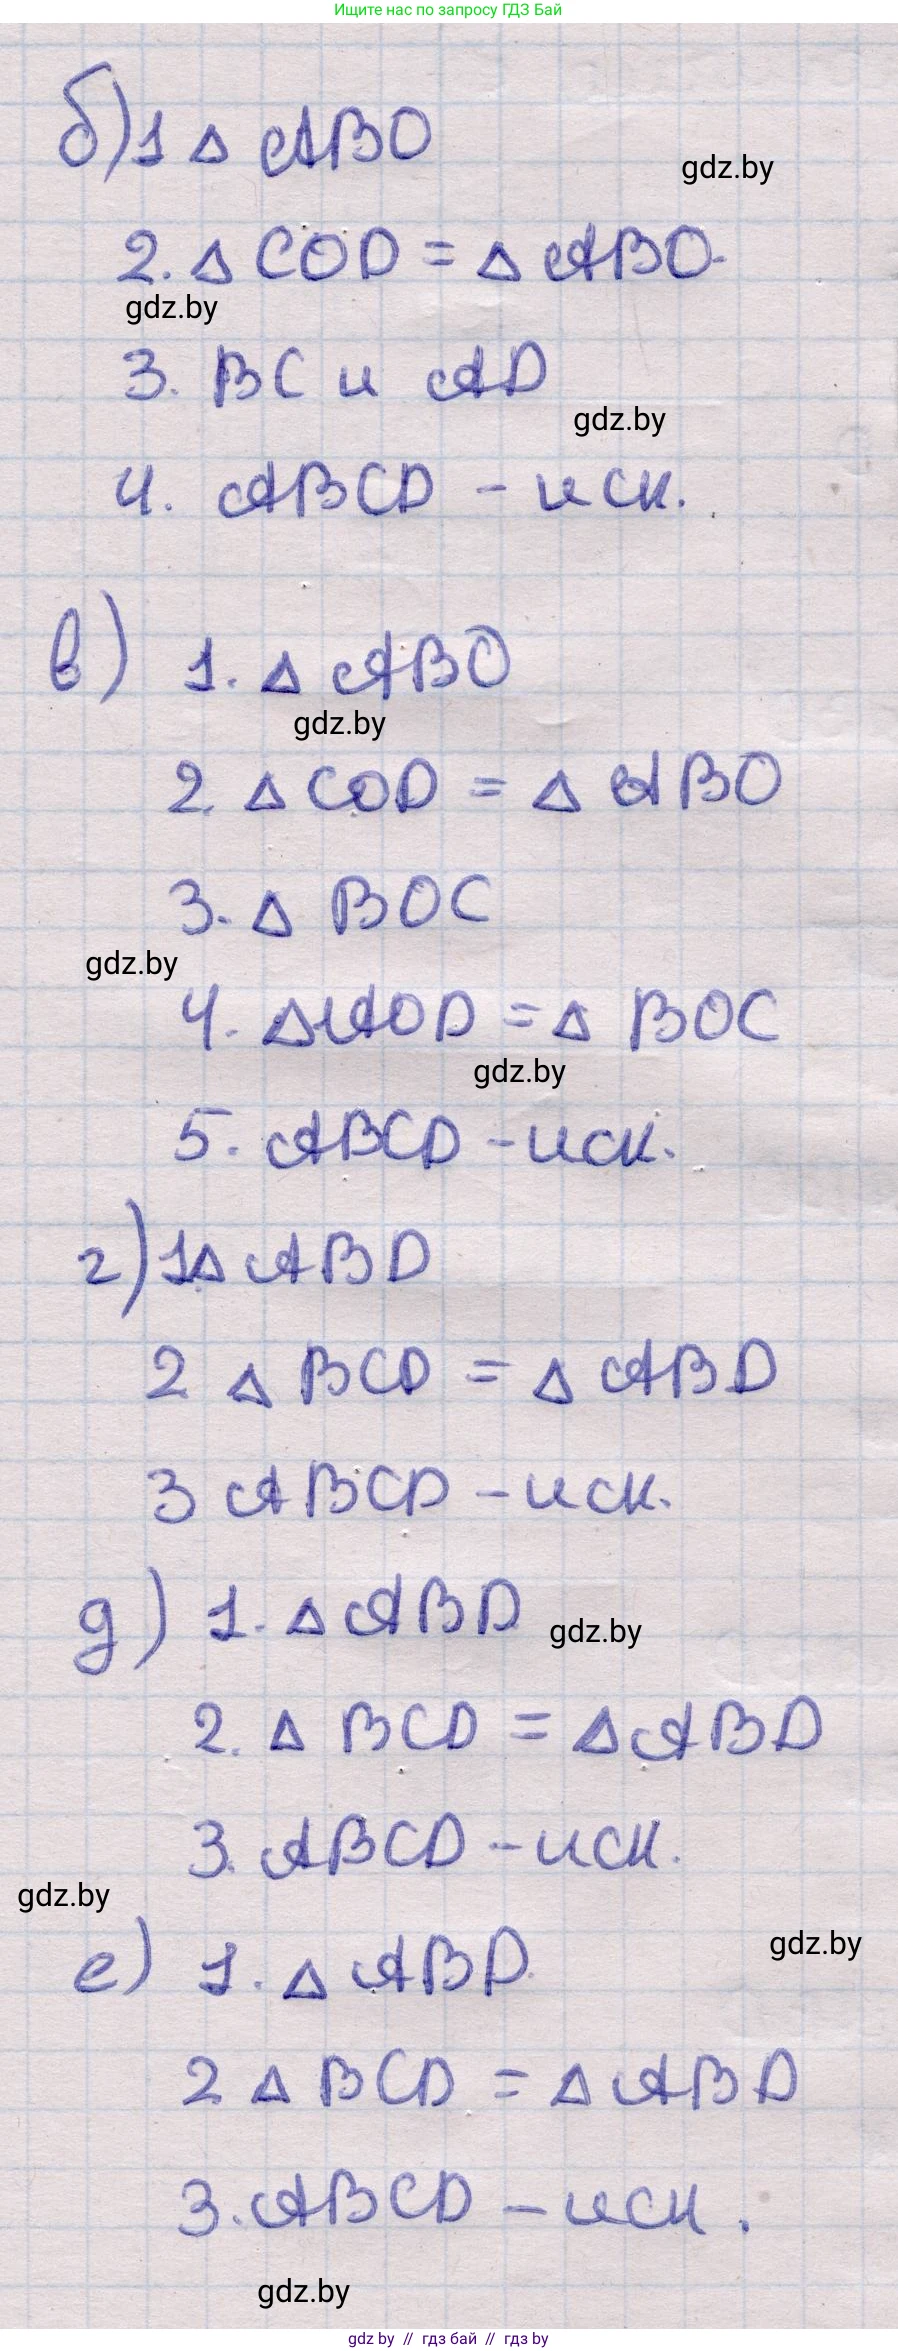 Ищите нас по запросу ГДЗ Бай
б) 1 Δ ABO
gdz.by
2. Δ COD = Δ ABO.
gdz.by
3. BC и AD
gdz.by
4. ABCD - иск.
в) 1. Δ ABO
gdz.by
2. Δ COD = Δ ABO
3. Δ BOC
gdz.by
4. Δ AOD = Δ BOC
gdz.by
5. ABCD - иск.
г) 1. Δ ABD
2 Δ BCD = Δ ABD
3 ABCD - иск.
д) 1. Δ ABD
gdz.by
2. Δ BCD = Δ ABD
3. ABCD - иск.
gdz.by
gdz.by
е) 1. Δ ABD.
2 Δ BCD = Δ ABD
3. ABCD - иск.
gdz.by
gdz by // гдз бай // гдз by